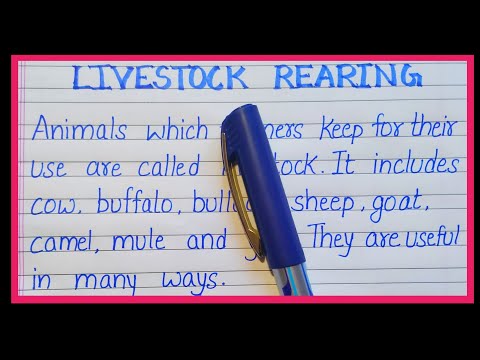 LIVESTOCK REARING
Animals which keep for their
use are called It includes
cow, buffalo, sheep, goat,
camel, mule and They are useful
in many ways.